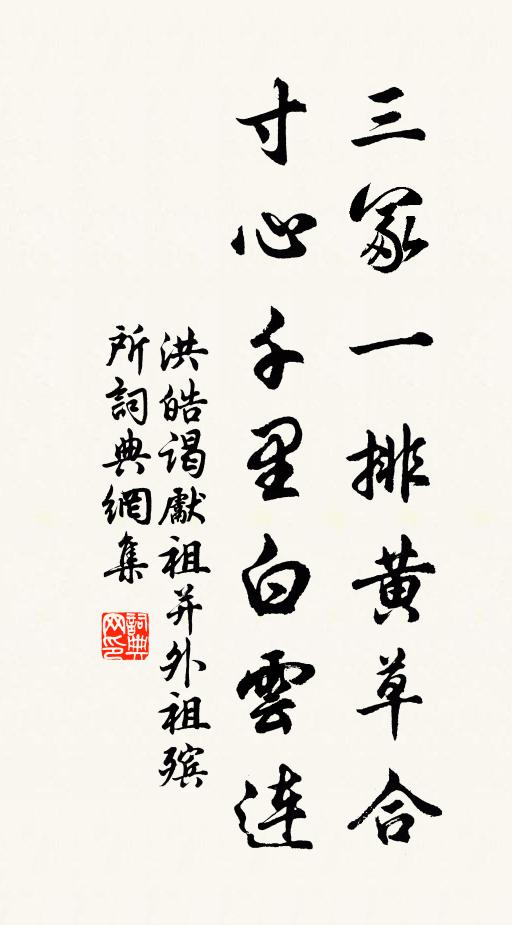 三冢一排黄草合
寸心千里白雲連
洪皓谒獻祖并外祖殡
所詞典網集
詞典
网印